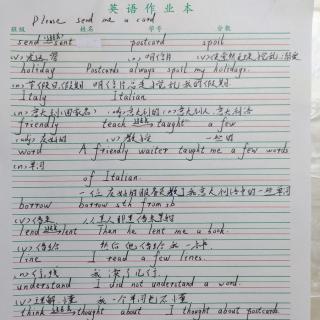 英语作业本
Please send me a card
班级 姓名 学号 分数
send 过去式 sent postcard spoil
(v)发送,寄 (n)明信片 (v)使索然无味,
holiday Postcards always spoil my holidays.
(n)节假日,假期 明信片总是 我的假期.
Italy Italian
(n)意大利(国家名) (adj)意大利的 (n)意大利人,意大利语
friendly teach 过去式 taught a few
(adj)友好的 (v)教 一些的
word A friendly waiter taught me a few words
(n)单词
of Italian.
一位友好的服务员教了我意大利语中的一些单词
borrow borrow sth from sb
(v)借来 从某人那里借来某物
lend 过去式 lent Then he lent me a book.
(v)借给 然后他借给我一本书.
line I read a few lines.
(n)行,线 我读了几行.
understand I did not understand a word.
(v)理解,懂 我一个单词也不懂
think 过去式 thought about I thought about postcards.